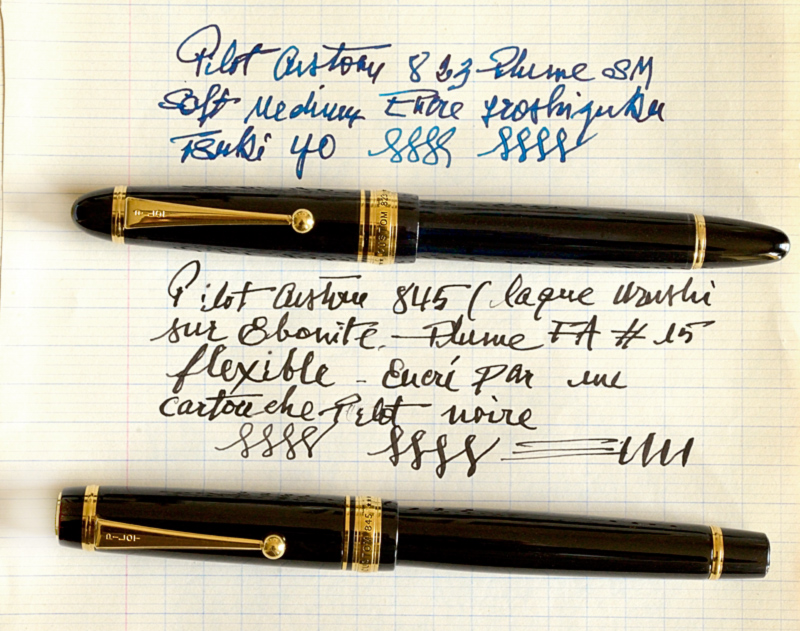 Pilot Custom 823 Plume SM
Soft Medium Encre Iroshizuku
Tsuki yo
PILOT
CUSTOM 823
Pilot Custom 845 (laque Urushi
sur Ebonite. - Plume FA # 15
flexible - Encré par une
cartouche Pilot noire
PILOT
CUSTOM 845